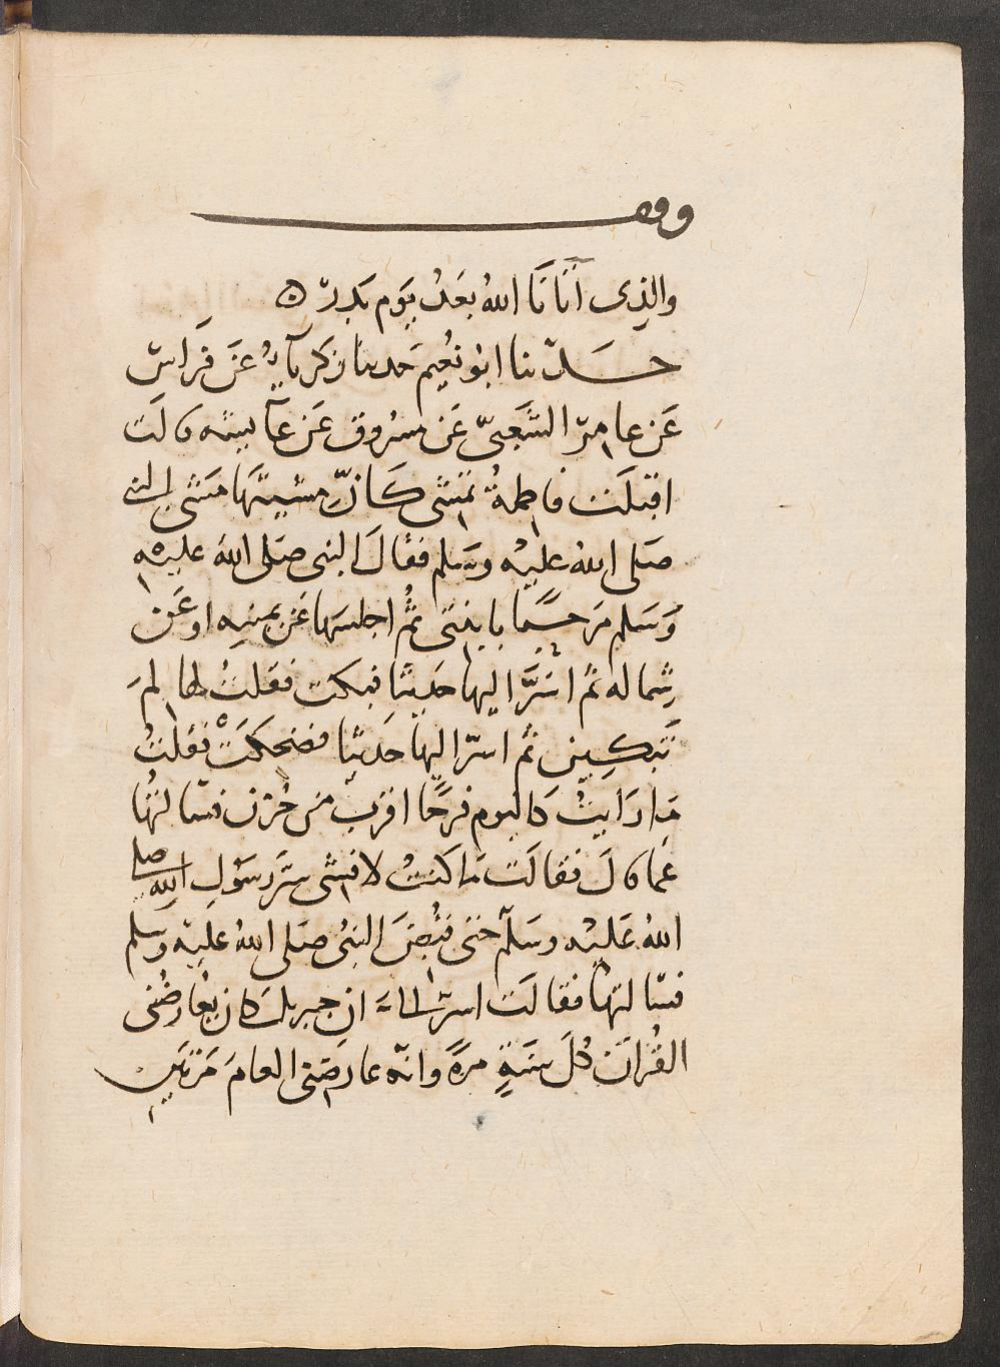 وقف
والذى اتانا الله بعد يوم بدر ۞
حدثنا ابو نعيم حدثنا زكرياء عن فراس
عن عامر الشعبىّ عن مسروق عن عآئشه قالت
اقبلت فاطمة تمشى كانّ مشيتها مشى النبى
صلى الله عليه وسلم فقال النبى صلى الله عليه
وسلم مرحبًا بابنتى ثم اجلسها عن يمينه او عن
شماله ثم اسرّ اليها حديثا فبكت فقلت لها لم
تبكين ثم اسرّ اليها حديثا فضحكت فقلت
ما رايت كاليوم فرحًا اقرب من حزن فسالتها
عما قال فقالت ما كنت لافشى سرّ رسول الله صلى
الله عليه وسلم حتى قبض النبى صلى الله عليه وسلم
فسالتها فقالت اسرّ الىّ ان جبريل كان يعارضنى
القران كل سنةٍ مرةً وانّه عارضنى العام مرتين